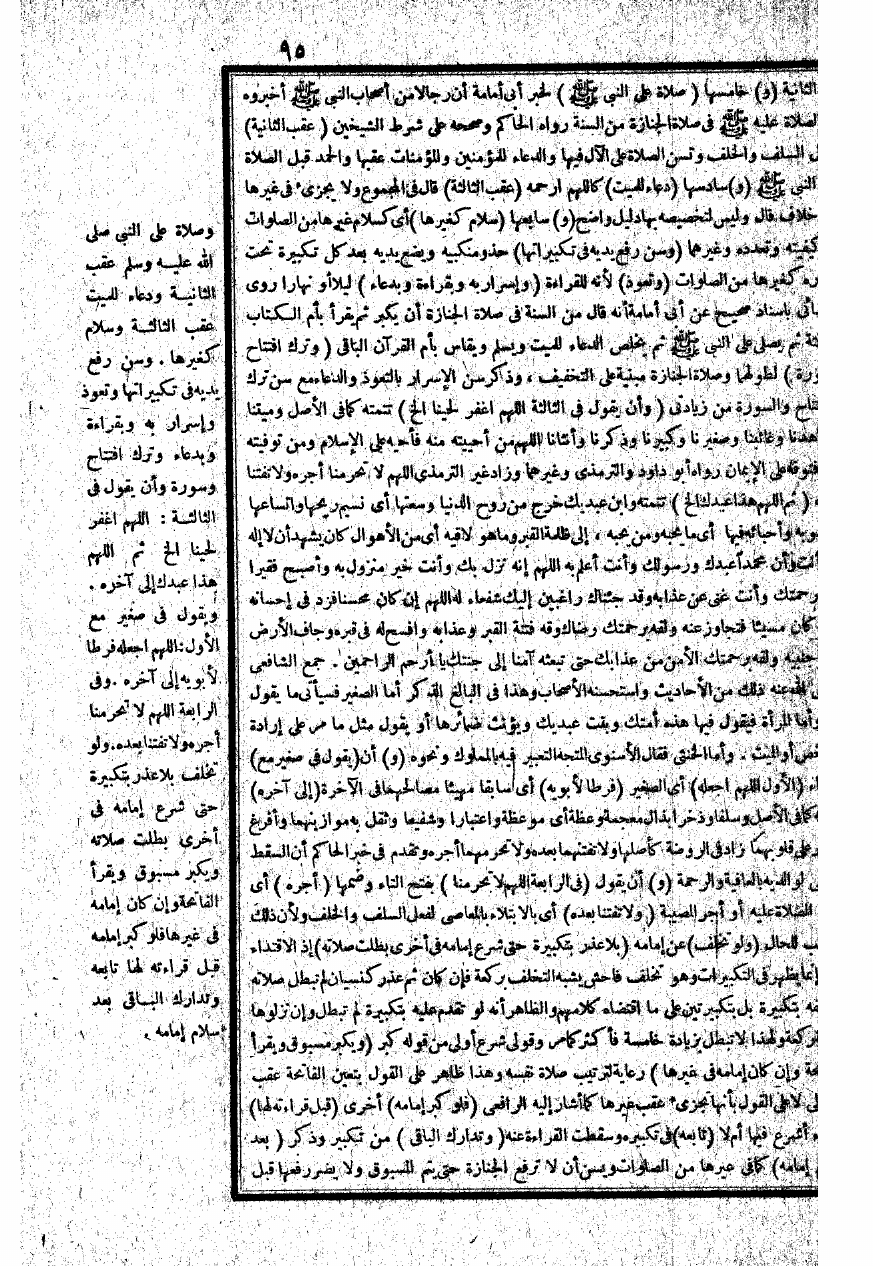 ٩٥
الثانية (و) خامسها (صلاة على النبي ﷺ) لخبر أبى أمامة أن رجالا من أصحاب النبي ﷺ أخبروه
الصلاة عليه ﷺ فى صلاة الجنازة من السنة رواه الحاكم وصححه على شرط الشيخين (عقب الثانية)
السلف والخلف وتسن الصلاة على الآل فيها والدعاء للمؤمنين والمؤمنات عقبها والحمد قبل الصلاة
النبي ﷺ (و) سادسها (دعاء للميت) كاللهم ارحمه (عقب الثالثة) قال فى المجموع ولا يجزىء فى غيرها
خلاف قال وليس لتخصيصه بها دليل واضح (و) سابعها (سلام كغيرها) أى كسلام غيرها من الصلوات
كيفيته وتعدده وغيرهما (وسن رفع يديه فى تكبيراتها) حذو منكبيه ويضع يديه بعد كل تكبيرة تحت
كغيرها من الصلوات (وتعوذ) لأنه للقراءة (وإسرار به وبقراءة وبدعاء) ليلا أو نهارا روى
باسناد صحيح عن أبى أمامة أنه قال من السنة فى صلاة الجنازة أن يكبر ثم يقرأ بأم الكتاب
ثم يصلى على النبي ﷺ ثم يخلص الدعاء للميت ويسلم ويقاس بأم القرآن الباقى (وترك افتتاح
) لطولهما وصلاة الجنازة مبنية على التخفيف، وذكر سن الإسرار بالتعوذ والدعاء مع سن ترك
والسورة من زيادتى (وأن يقول فى الثالثة اللهم اغفر لحينا الخ) تتمته كما فى الأصل وميتنا
وغائبنا وصغيرنا وكبيرنا وذكرنا وأنثانا اللهم من أحييته منه فأحيه على الإسلام ومن توفيته
فتوفه على الإيمان رواه أبو داود والترمذى وغيرهما وزاد غير الترمذى اللهم لا تحرمنا أجره ولا تفتنا
(ثم اللهم هذا عبدك الخ) تتمته وابن عبديك خرج من روح الدنيا وسعتها أى نسيم ريحها واتساعها
وأحبائه فيها أى ما يحبه ومن يحبه، إلى ظلمة القبر وما هو لاقيه أى من الأهوال كان يشهد أن لا إله
أنت وأن محمدا عبدك ورسولك وأنت أعلم به اللهم إنه نزل بك وأنت خير منزول به وأصبح فقيرا
رحمتك وأنت غنى عن عذابه وقد جئناك راغبين إليك شفعاء له اللهم إن كان محسنا فزد فى إحسانه
كان مسيئا فتجاوز عنه ولقه برحمتك رضاك وقه فتنة القبر وعذابه وافسح له فى قبره وجاف الأرض
ولقه برحمتك الأمن من عذابك حتى تبعثه آمنا إلى جنتك يا أرحم الراحمين. جمع الشافعى
عنه ذلك من الأحاديث واستحسنه الأصحاب وهذا فى البالغ الذكر أما الصغير فسيأتى ما يقول
وأما المرأة فيقول فيها هذه أمتك وبنت عبديك ويؤنث ضمائرها أو يقول مثل ما مر على إرادة
أو الميت. وأما الخنثى فقال الأسنوى المتجه التعبير فيه بالمملوك ونحوه (و) أن (يقول فى صغير مع)
(الأول اللهم اجعله) أى الصغير (فرطا لأبويه) أى سابقا مهيئا مصالحهما فى الآخرة (إلى آخره)
كما فى الأصل وسلفا وذخرا بذال معجمة وعظة أى موعظة واعتبارا وشفيعا وثقل به موازينهما وأفرغ
على قلوبهما زاد فى الروضة كأصلها ولا تفتنهما بعده ولا تحرمهما أجره وتقدم فى خبر الحاكم أن السقط
لوالديه بالعافية والرحمة (و) أن يقول (فى الرابعة اللهم لا تحرمنا) بفتح التاء وضمها (أجره) أى
الصلاة عليه أو أجر المصيبة (ولا تفتنا بعده) أى بالابتلاء بالمعاصى لفعل السلف والخلف ولأن ذلك
للحال (ولو تخلف) عن إمامه (بلا عذر بتكبيرة حتى شرع إمامه فى أخرى بطلت صلاته) إذ الاقتداء
إنما يظهر فى التكبيرات وهو تخلف فاحش يشبه التخلف بركعة فإن كان ثم عذر كنسيان لم تبطل صلاته
بتكبيرة بل بتكبيرتين على ما اقتضاه كلامهم والظاهر أنه لو تقدم عليه بتكبيرة لم تبطل وإن نزلوها
ولهذا لا تبطل بزيادة خامسة فأكثر كما مر وقولى شرع أولى من قوله كبر (ويكبر مسبوق ويقرأ
وإن كان إمامه فى غيرها) رعاية لترتيب صلاة نفسه وهذا ظاهر على القول بتعين الفاتحة عقب
لا على القول بأنها تجزىء عقب غيرها كما أشار إليه الرافعى (فلو كبر إمامه) أخرى (قبل قراءته لها)
أشرع فيها أم لا (تابعه) فى تكبيره وسقطت القراءة عنه (وتدارك الباقى) من تكبير وذكر (بعد
إمامه) كما فى غيرها من الصلوات ويسن أن لا ترفع الجنازة حتى يتم المسبوق ولا يضر رفعها قبل
وصلاة على النبي صلى
الله عليه وسلم عقب
الثانية ودعاء للميت
عقب الثالثة وسلام
كغيرها. وسن رفع
يديه فى تكبيراتها وتعوذ
وإسرار به وبقراءة
وبدعاء وترك افتتاح
وسورة وأن يقول فى
الثالثة: اللهم اغفر
لحينا الخ ثم اللهم
هذا عبدك إلى آخره.
ويقول فى صغير مع
الأول: اللهم اجعله فرطا
لأبويه إلى آخره. وفى
الرابعة اللهم لا تحرمنا
أجره ولا تفتنا بعده. ولو
تخلف بلا عذر بتكبيرة
حتى شرع إمامه فى
أخرى بطلت صلاته
ويكبر مسبوق ويقرأ
الفاتحة وإن كان إمامه
فى غيرها فلو كبر إمامه
قبل قراءته لها تابعه
وتدارك الباقى بعد
سلام إمامه.